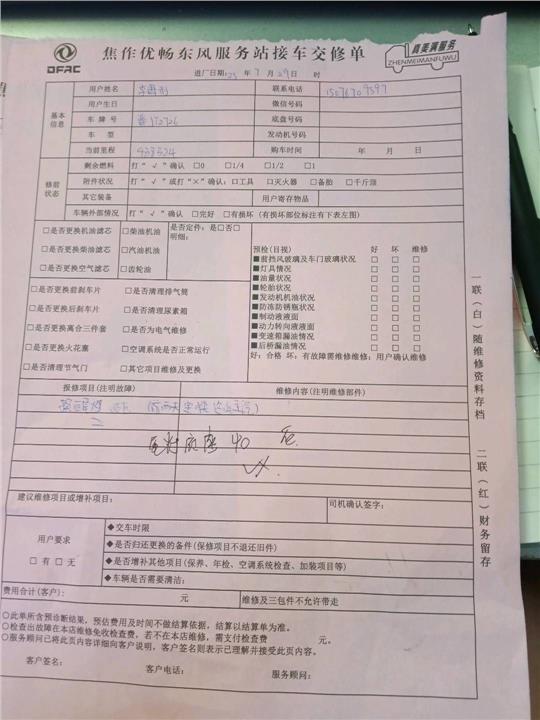 DFAC
焦作优畅东风服务站接车交修单
真美满服务
ZHENMEIMANFUWU
进厂日期:23 年 7 月 29 日 时
基本信息
用户姓名 联系电话
用户生日 微信号码
车 牌 号 底盘号码
车 型 发动机号码
当前里程 433324 购车时间 年 月 日
修前状态
剩余燃料 打“ √ ”确认 □0 □1/4 □1/2 □1
附件状况 打“ √ ”或打“×”确认:□工具 □灭火器 □备胎 □千斤顶
其它装备 用户寄存物品
车辆外部情况 打“ √ ”确认 □完好 □有损坏 (有损坏部位标注有下表左图)
□是否更换机油滤芯 □柴油机油 是否定件: 是□否□
明细:
□是否更换柴油滤芯 □汽油机油
□是否更换空气滤芯 □齿轮油
□是否更换前刹车片 □是否清理排气筒
□是否更换后刹车片 □是否清理尿素箱
□是否更换离合三件套 □是否为电气维修
□是否更换火花塞 □空调系统是否正常运行
□是否清理节气门 □其它项目维修及更换
预检(目视) 好 坏 维修
■前挡风玻璃及车门玻璃状况 □ □ □
■灯具情况 □ □ □
■油量状况 □ □ □
■轮胎状况 □ □ □
■发动机机油状况 □ □ □
■防冻防锈瓶状况 □ □ □
■制动液液面 □ □ □
■动力转向液液面 □ □ □
■变速箱漏油情况 □ □ □
■后桥漏油情况 □ □ □
好:合格 坏:有故障需维修维修:用户确认维修
报修项目(注明故障) 维修内容(注明维修部件)
40
建议维修项目或增补项目: 司机确认签字:
用户要求
□ 有 □ 无
◆交车时限
◆是否归还更换的备件(保修项目不退还旧件)
◆是否增补其他项目(保养、年检、空调系统检查、加装项目等)
◆车辆是否需要清洁:
费用合计(客户): 元 维修及三包件不允许带走
○此单所含预诊断结果，预估费用及时间不做结算依据，结算以结算单为准。
○检查出故障在本店维修免收检查费，若不在本店维修，需支付检查费 元。
○服务顾问已将此页内容详细向客户说明，客户签名则表示已理解并接受此页内容。
客户签名: 客户电话: 服务顾问:
一联(白)随维修资料存档 二联(红)财务留存